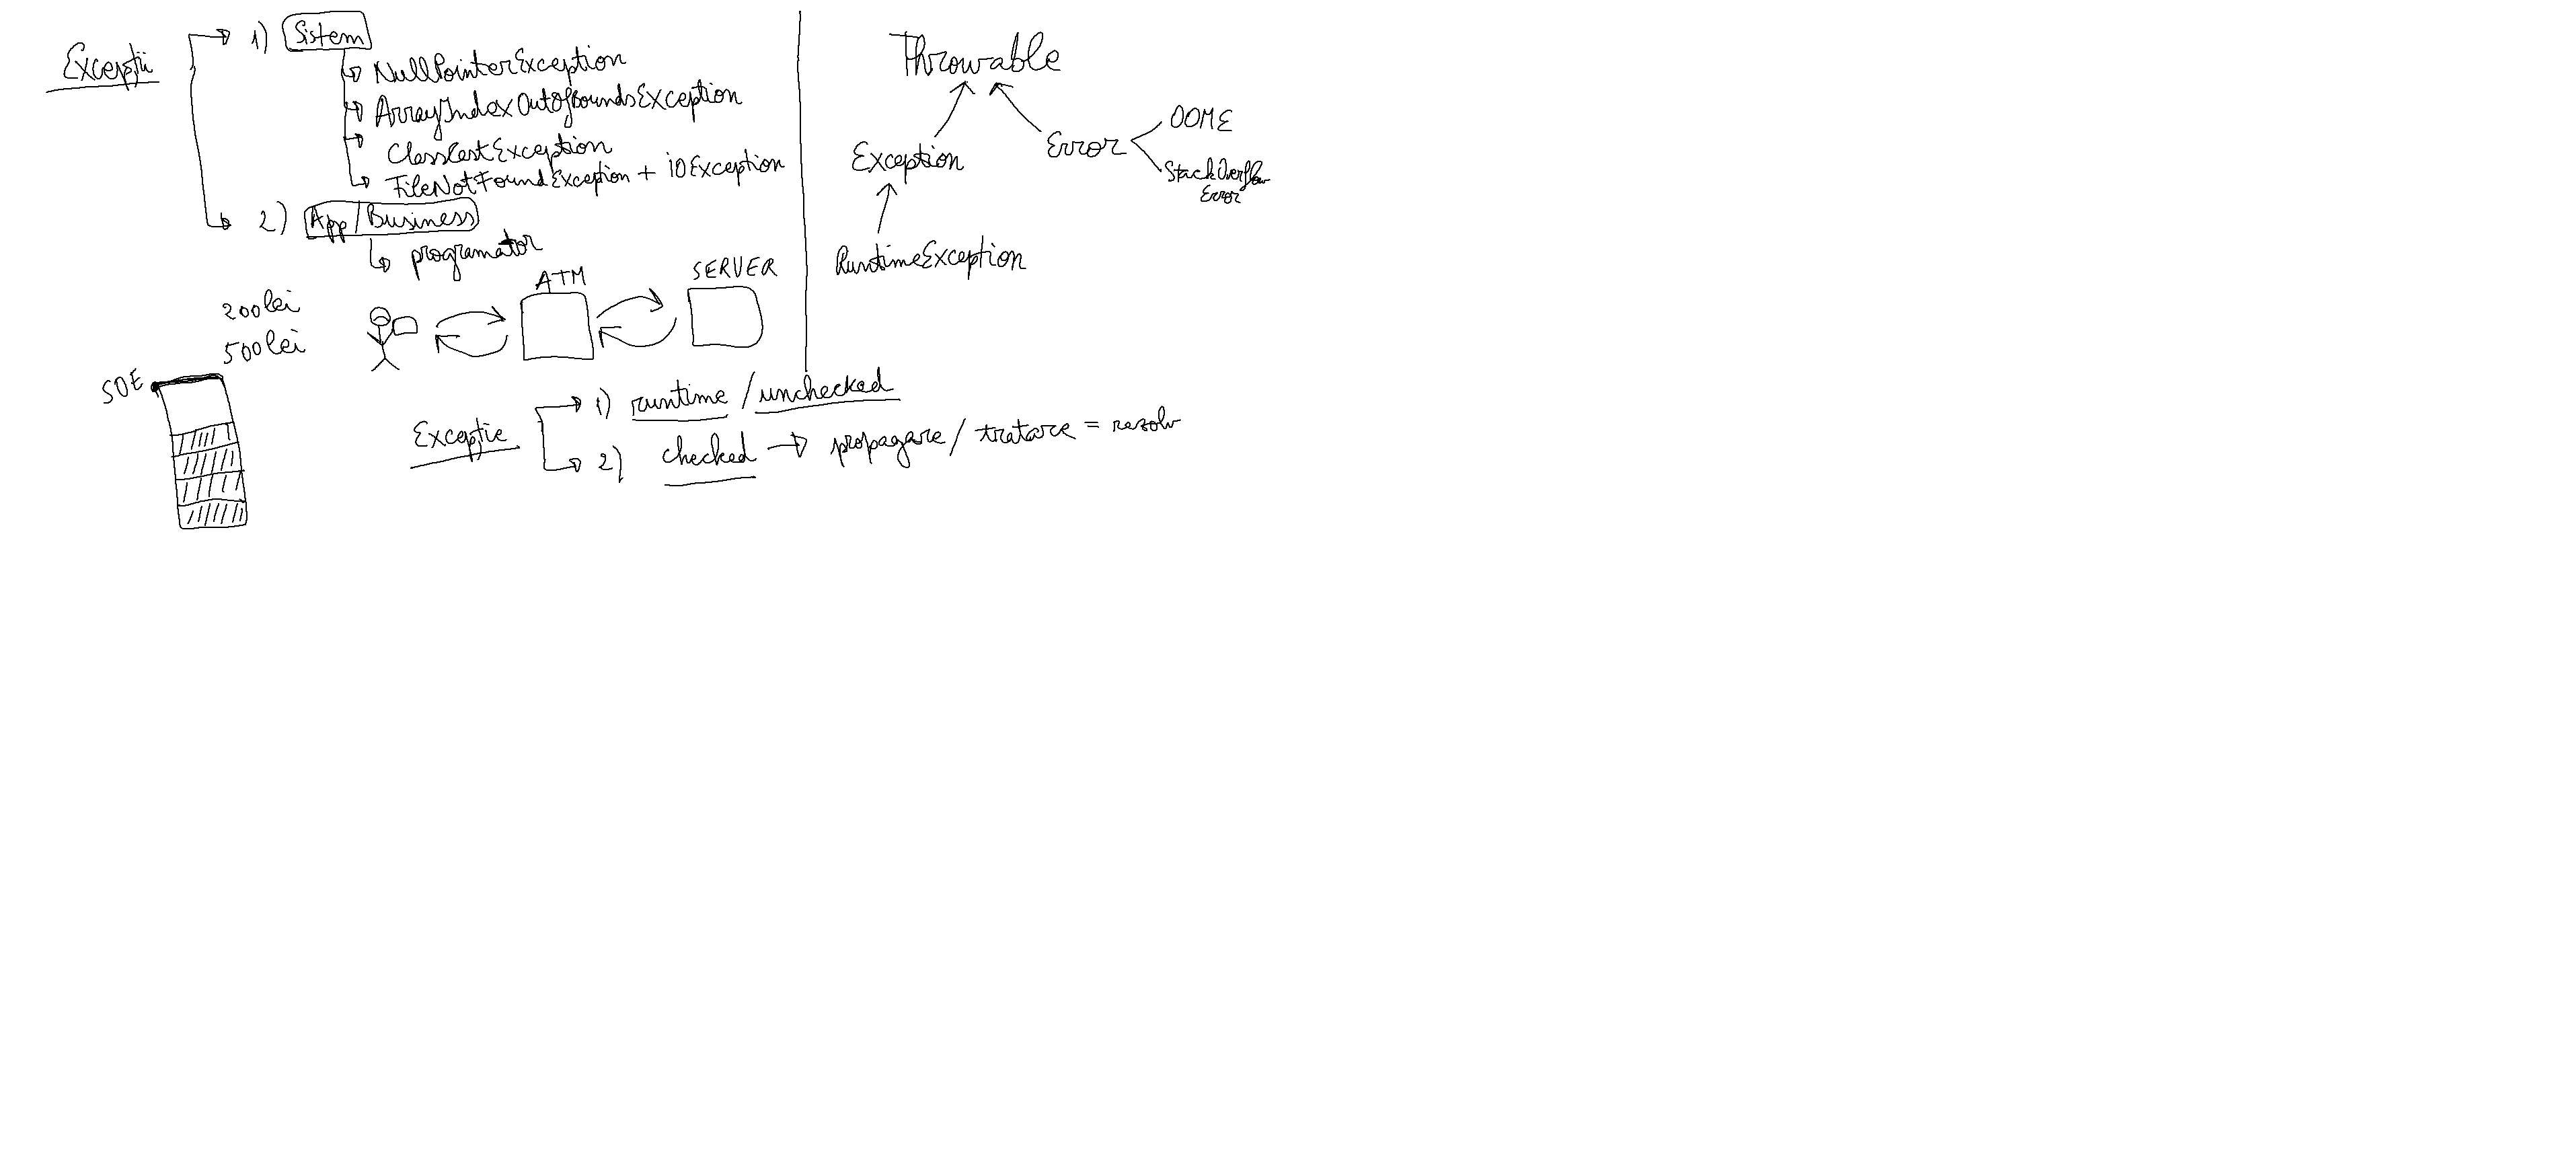 Excepții
1) Sistem
NullPointerException
ArrayIndexOutOfBoundsException
ClassCastException
FileNotFoundException + iOException
2) App/Business
programator
200 lei
500 lei
ATM
SERVER
SOE
Throwable
Exception
Error
OOME
StackOverflow
Error
RuntimeException
Excepție
1) runtime / unchecked
2) checked → propagare / tratare = rezolv